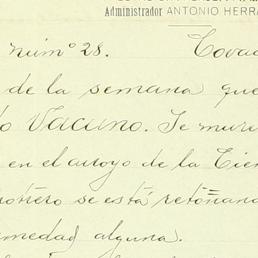 Administrador ANTONIO HERRA
núm° 28. Cova
de la semana que
o Vacuno. Se muri
en el arroyo de la Cien
otrero se está retoñand
medad alguna.